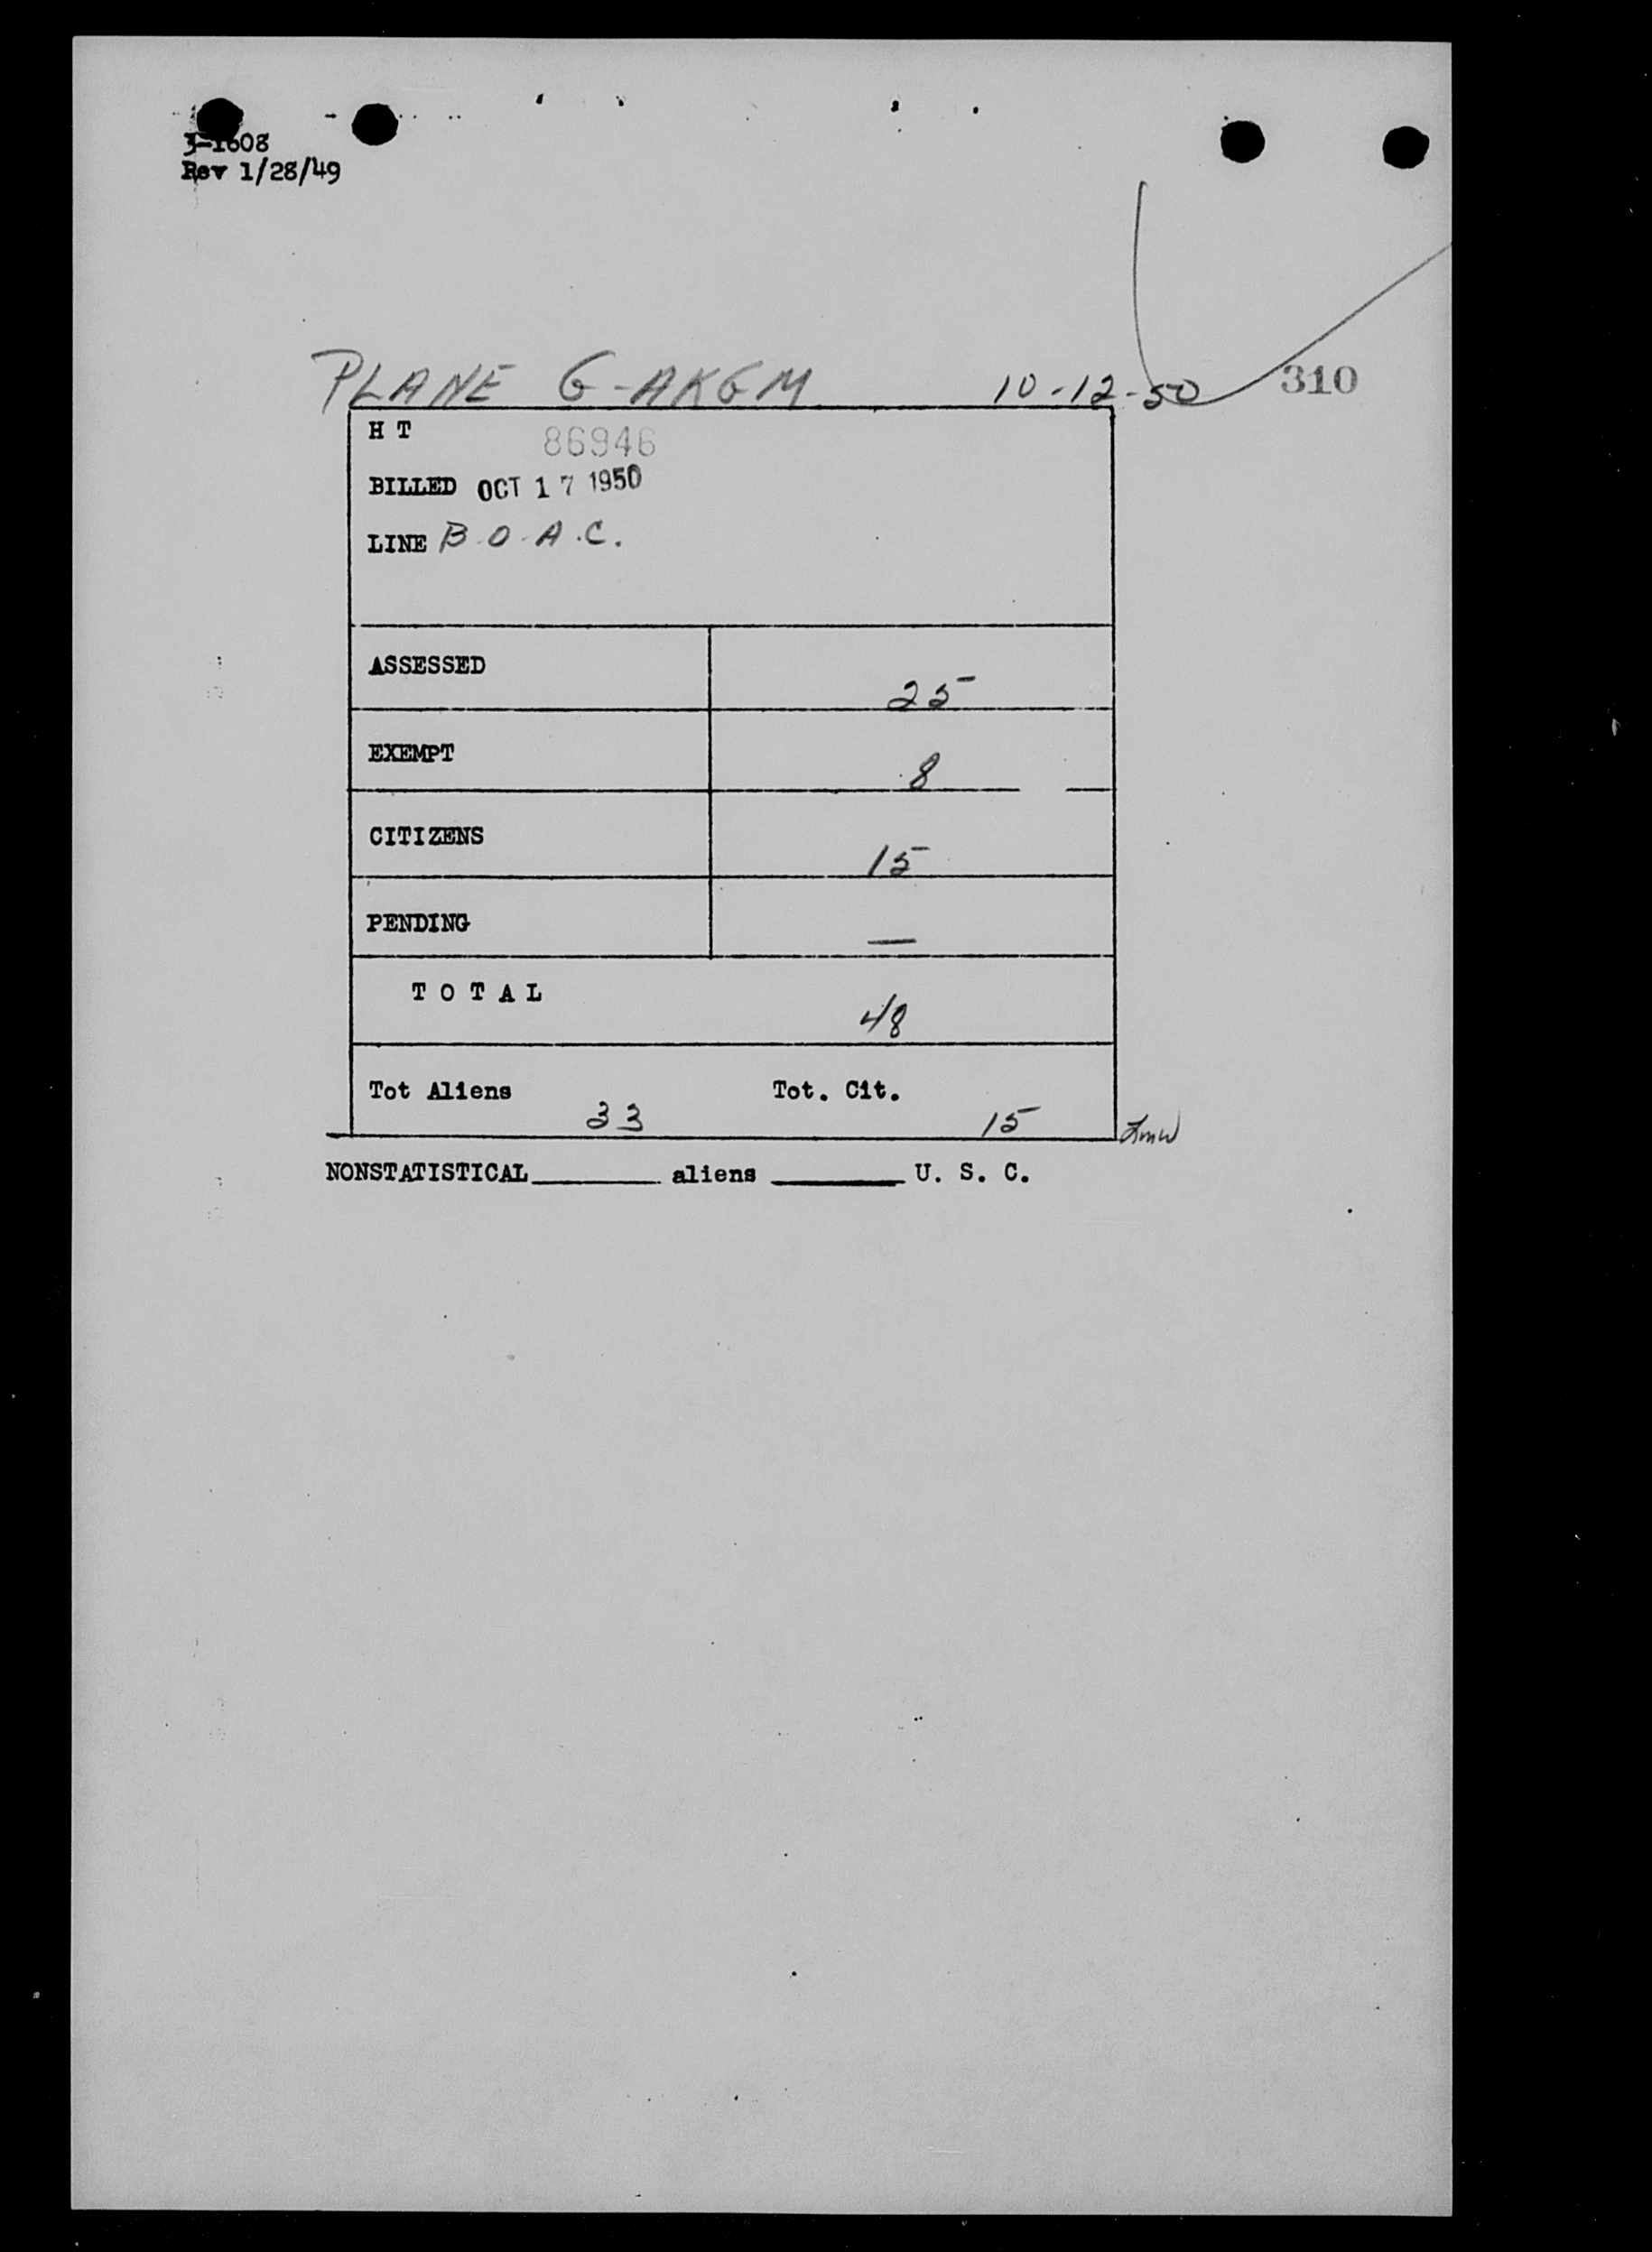 3-1608
Rev 1/28/49
PLANE G-AKGM 10-12-50 310
H T 86946
BILLED OCT 17 1950
LINE B.O.A.C.
ASSESSED 25
EXEMPT 8
CITIZENS 15
PENDING —
TOTAL 48
Tot Aliens 33 Tot. Cit. 15
NONSTATISTICAL______ aliens ______ U. S. C.